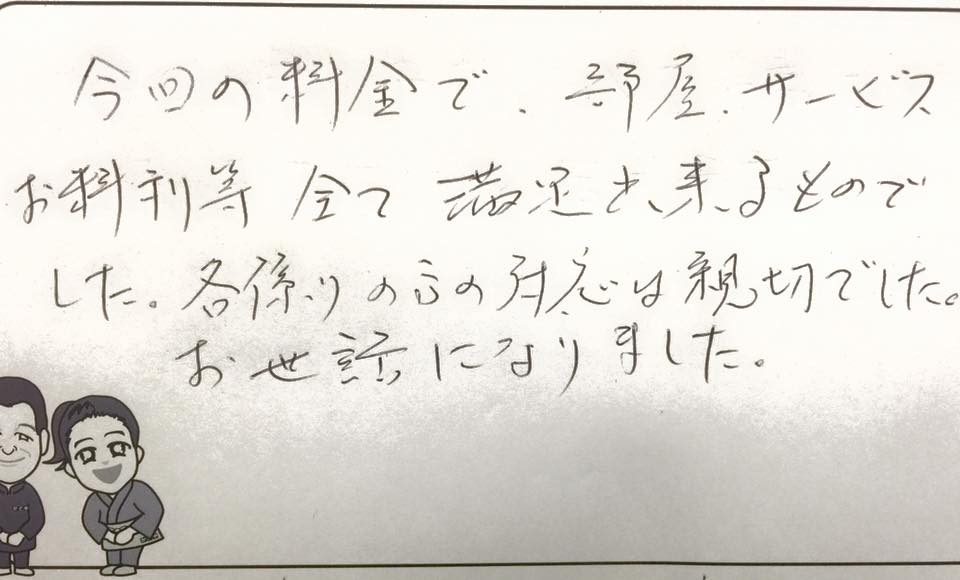 今回の料金で、部屋、サービス
お料利等 全て 満足出来るもので
した。各係りの方の対応は親切でした。
お世話になりました。